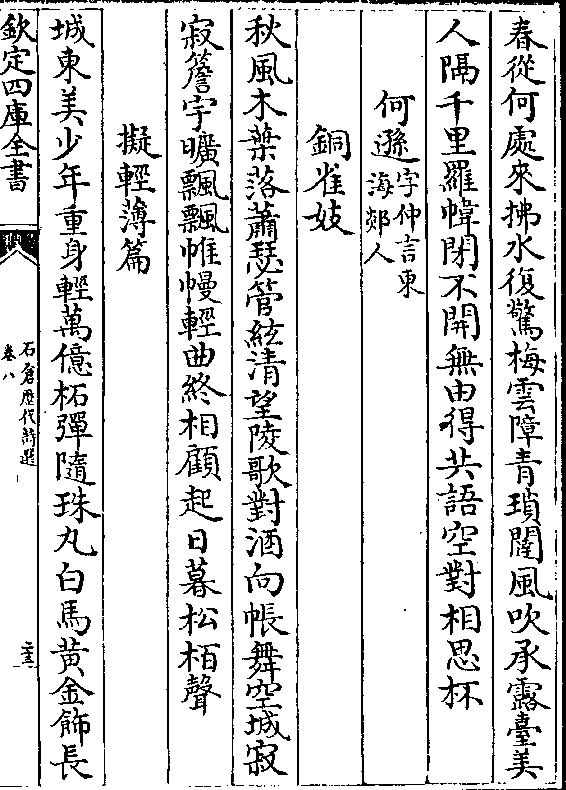 春從何處來拂水復驚梅雲障青瑣闥風吹承露臺美
人隔千里羅幃閉不開無由得共語空對相思杯
何遜字仲言東海郯人
銅雀妓
秋風木葉落蕭瑟管絃清望陵歌對酒向帳舞空城寂
寂簷宇曠飄飄帷幔輕曲終相顧起日暮松柏聲
擬輕薄篇
城東美少年重身輕萬億柘彈隨珠丸白馬黃金飾長
欽定四庫全書
石倉歷代詩選
卷八
二三